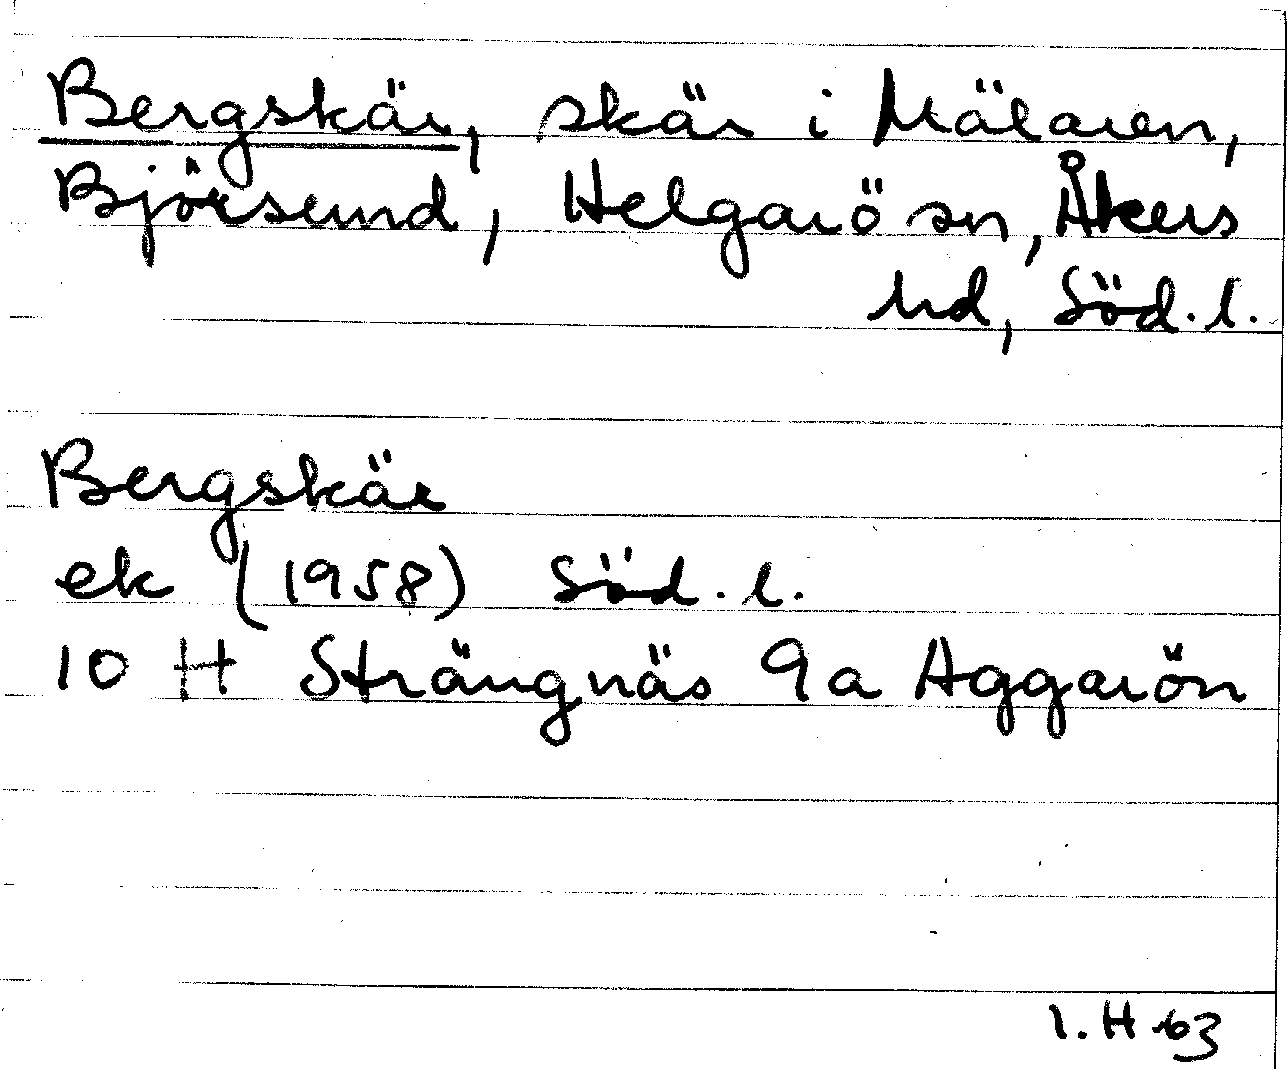 Bergskär, skär i Mälaren,
Björsund, Helgarö sn, Åkers
hd, Söd. l.
Bergskär
ek (1958) Söd. l.
10 H Strängnäs 9a Aggarön
I. H-63